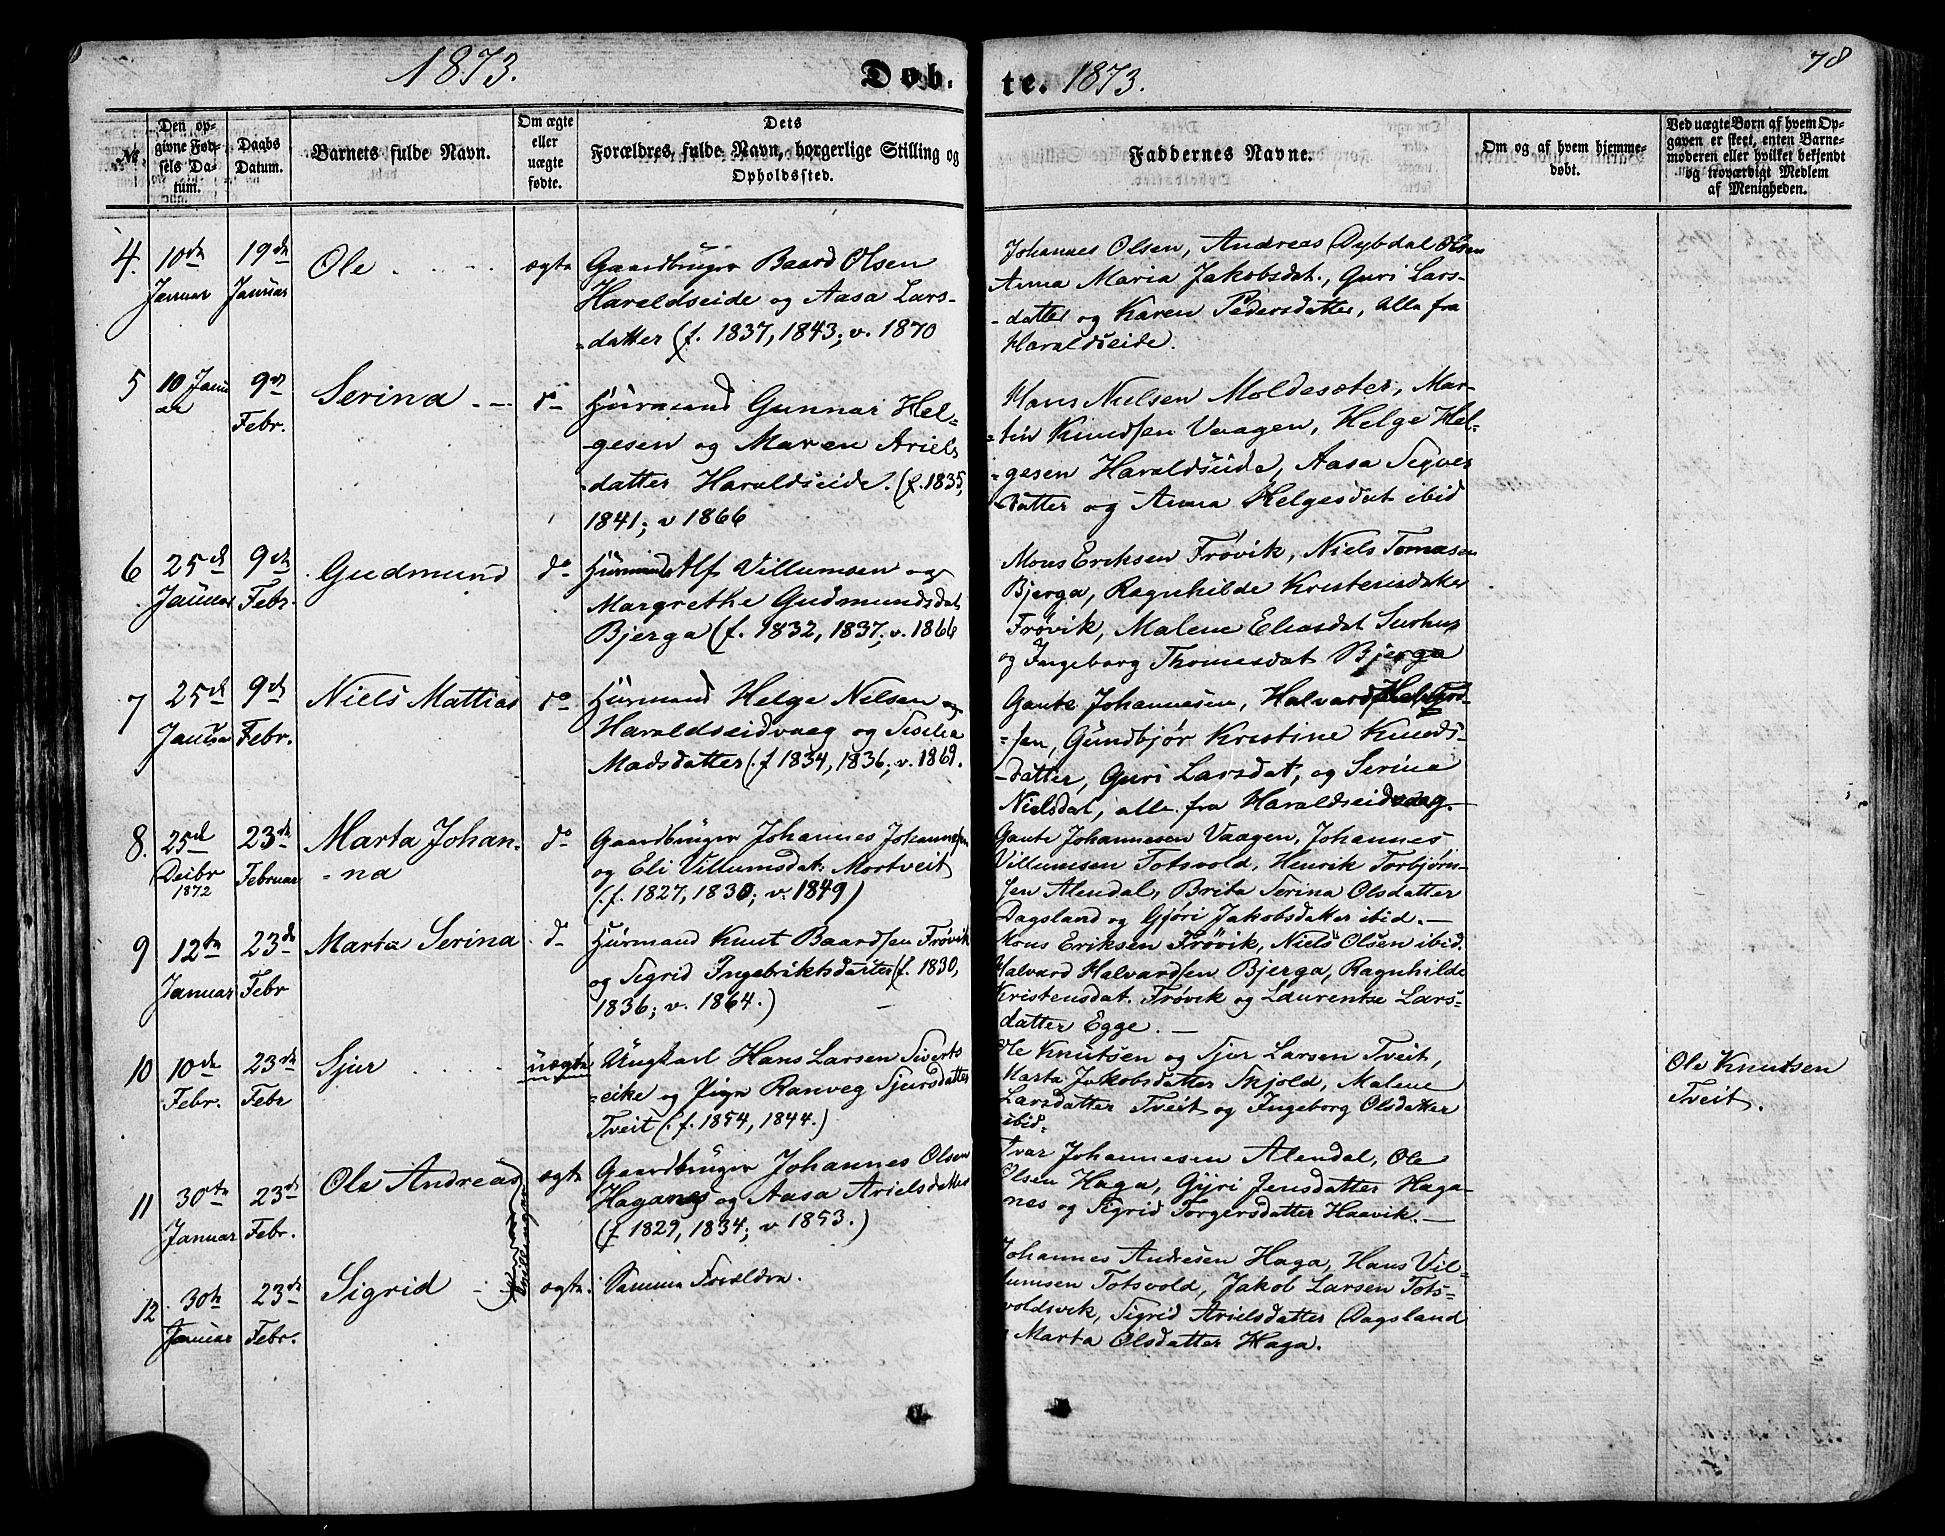 1873.
Døb.
te. 1873.
78
No.
Den op-
givne Fød-
sels Da-
tum.
Daabs
Datum.
Barnets fulde Navn.
Om ægte
eller
uægte
fødte.
Dets
Forældres fulde Navn, borgerlige Stilling og
Opholdssted.
Faddernes Navne.
Om og af hvem hjemme-
døbt.
Ved uægte Børn af hvem Op-
gaven er skeet, enten Barne-
moderen eller hvilket bekjendt
og troværdigt Medlem
af Menigheden.
4.
10de
Januar
19de
Januar
Ole
ægte
Gaardbruger Baard Olsen
Haraldseide og Aasa Lars-
-datter (f. 1837, 1843; v. 1870
Johannes Olsen, Andreas Dybdal Olsen
Anna Maria Jakobsdat., Guri Lars-
-datter og Karen Pedersdatter, alle fra
Haraldseide.
5
10 Janu
ar
9de
Febr.
Serina
do
Huusmand Gunnar Hel-
-gesen og Maren Ariels
-datter Haraldseide. (f. 1835,
1841; v 1866
Hans Nielsen Moldesæter, Mar-
-tin Knudsen Vaagen, Helge Hel-
-gesen Haraldseide, Aasa Sigver
datter og Anna Helgesdat ibid
6
25de
Januar
9de
Febr.
Gudmund
do
Huusmand Alf Villumsen og
Margrethe Gudmundsdat
Bjerga (f. 1832, 1837; v. 1866
Mons Eriksen Frøvik, Niels Tomasen
Bjerga, Ragnhilde Kristensdatter
Frøvik, Malene Eliasdat Surhus
og Ingeborg Thomesdat Bjerga
7
25de
Januar
9de
Febr.
Niels Mattias
do
Huusmand Helge Nelsen og
Haraldseidvaag og Sesilia
Madsdatter (f 1834, 1836; v. 1869.
Gaute Johannesen, Halvard
-sen, Gundbjør Kristine Knuds-
-datter, Guri Larsdat, og Serina
Nielsdat, alle fra Haraldseidvaag.
8.
25de
Decbr
1872
23de
Februar
Marta Johan-
-na
do
Gaardbruger Johannes Johannesen
og Eli Villumsdat. Mortveit
(f. 1827, 1830; v. 1849)
Gaute Johannesen Vaagen, Johannes
Villumsen Totsvold, Henrik Torbjørn-
sen Alendal, Brita Serina Olsdatter
Dagsland og Gjøri Jakobsdatter ibid.
9
12te
Januar
23de
Febr
Marta Serina
do
Huusmand Knut Baardsen Frøvik
og Sigrid Ingebriktsdatter (f. 1830,
1836; v. 1864.)
Mons Eriksen Frøvik, Niels Olsen ibid.
Halvard Halvardsen Bjerga, Ragnhilde
Kristensdat. Frøvik og Laurentse Lars-
datter Egge.
10
10de
Febr.
23de
Febr
Sjur
uægte
Ungkarl Hans Larsen Siverts
-eike og Pigen Ranveg Sjursdatter
Tveit (f. 1854, 1844.)
Ole Knutsen og Sjur Larsen Tveit,
Marta Jakobsdatter Skjold, Malene
Larsdatter Tveit og Ingeborg Olsdatter
ibid.
Ole Knutsen
Tveit.
11
30te
Januar
23de
Febr.
Ole Andreas
Tvillinger
ægte
Gaardbruger Johannes Olsen
Haganes og Aasa Arielsdatter
(f 1829, 1834; v 1853.)
Ivar Johannesen Alendal, Ole
Olsen Haga, Gyri Jensdatter Haga-
nes og Sigrid Torgersdatter Haavik.
12
30te
Januar
23de
Febr.
Sigrid
ægte.
Samme Forældre.
Johannes Andresen Haga, Hans Vil-
lumsen Totsvold, Jakob Larsen Tots-
voldsvik, Sigrid Arielsdatter Dagsland
Marta Olsdatter Haga.